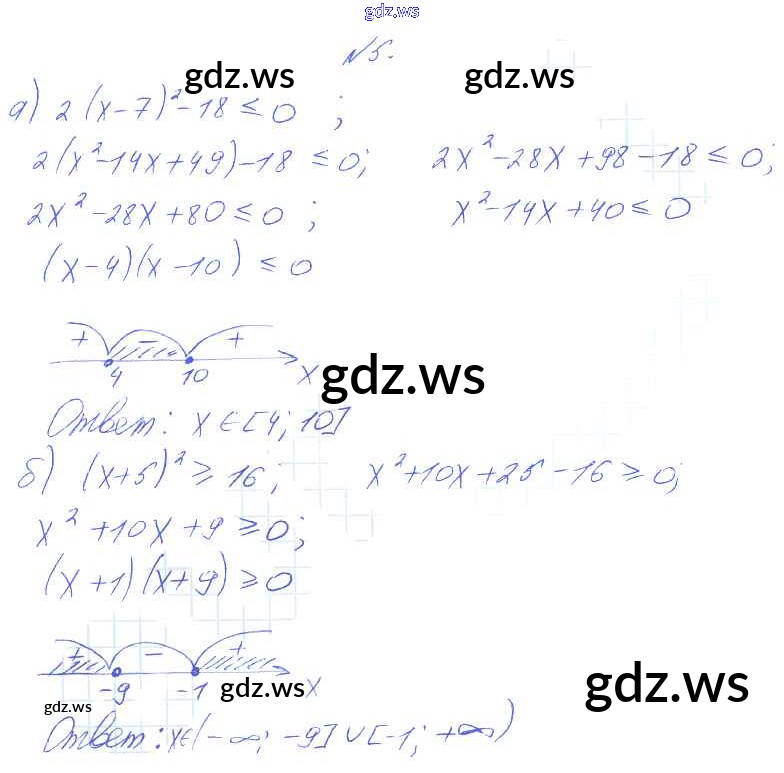 gdz.ws
№5.
gdz.ws gdz.ws
а) 2(x-7)²-18≤0 ;
2(x²-14x+49)-18≤0; 2x²-28x+98-18≤0;
2x²-28x+80≤0 ; x²-14x+40≤0
(x-4)(x-10)≤0
+ - +
4 10 x
gdz.ws
Ответ: x∈[4; 10]
б) (x+5)²≥16; x²+10x+25-16≥0;
x²+10x+9≥0;
(x+1)(x+9)≥0
+ - +
-9 -1 x
gdz.ws gdz.ws
gdz.ws
Ответ: x∈(-∞; -9]∪[-1; +∞)